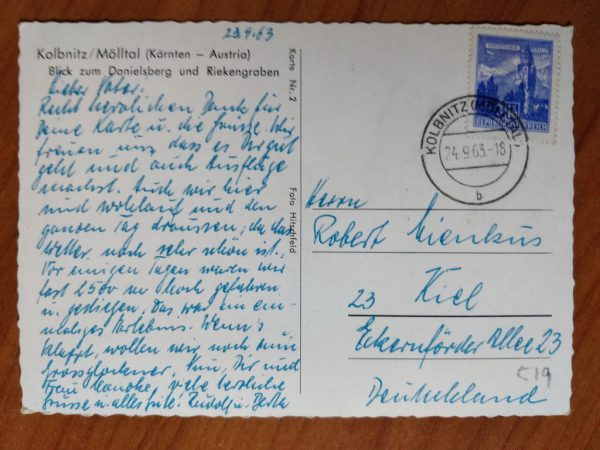 23.9.63
Kolbnitz/Mölltal (Kärnten – Austria)
Blick zum Danielsberg und Riekengraben
Lieber Vater.
Recht herzlichen Dank für
Deine Karte u. die Grüsse. Wir
freuen uns, dass es Dir gut
geht und auch Ausflüge
machst. Auch wir hier
sind wohlauf und den
ganzen Tag draussen, da das
Wetter noch sehr schön ist.
Vor einigen Tagen waren wir
fast 2500 m hoch gefahren
u. gestiegen. Das war ein ein-
maliges Erlebnis. Wenn's
klappt, wollen wir noch zum
Grossglockner. Nun, Dir und
Frau viele herzliche
Grüsse u. alles Gute! Rudolf u. Herta
Karte Nr. 2
Foto Hirschfeld
REPUBLIK ÖSTERREICH
KOLBNITZ (MÖLLTAL)
24.9.63.-18
b
Herrn
Robert Mienkus
23 Kiel
Eckernförder Allee 23
Deutschland